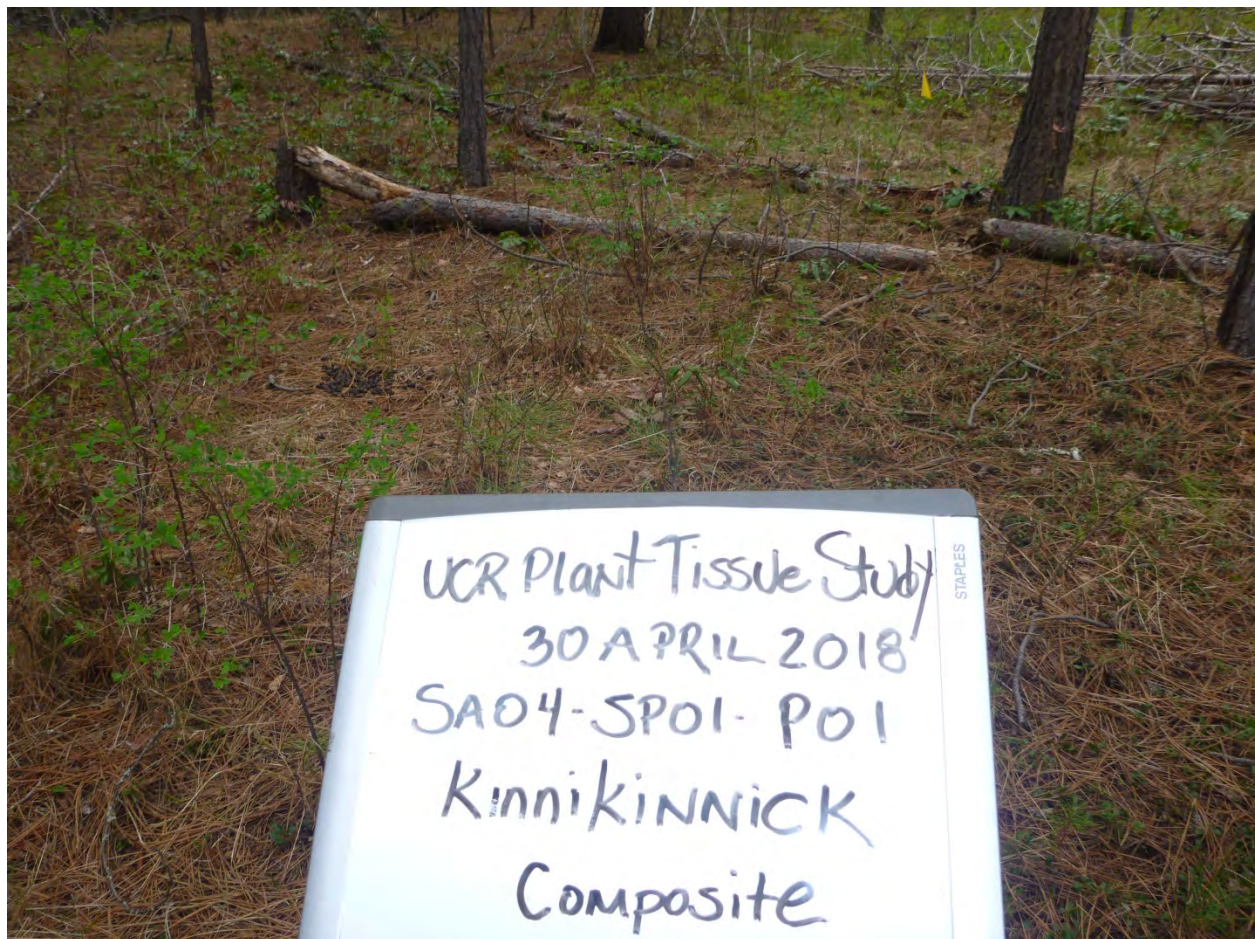 UCR Plant Tissue Study
30 APRIL 2018
SA04-SP01-P01
KinniKiNNiCK
Composite
STAPLES